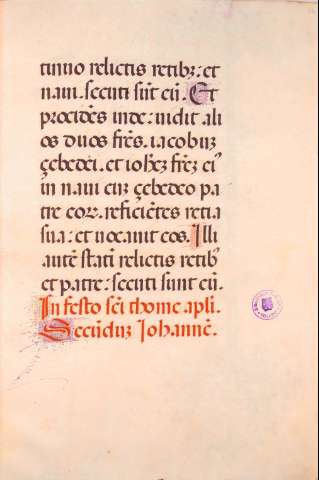 tinuo relictis retibꝫ: et
naui. secuti sūt eū. Et
procidēs inde: uidit ali
os duos frēs. iacobuꝫ
çebedei. et ioħeꝫ frēꝫ eiꝰ
in naui cuꝫ çebedeo pa
tre eorꝫ. reficiētes retia
sua: et uocauit eos. Illi
autē stati relictis retibꝰ
et patre: secuti sunt eū.
In festo scī thome apli.
Secūduꝫ Johannē.